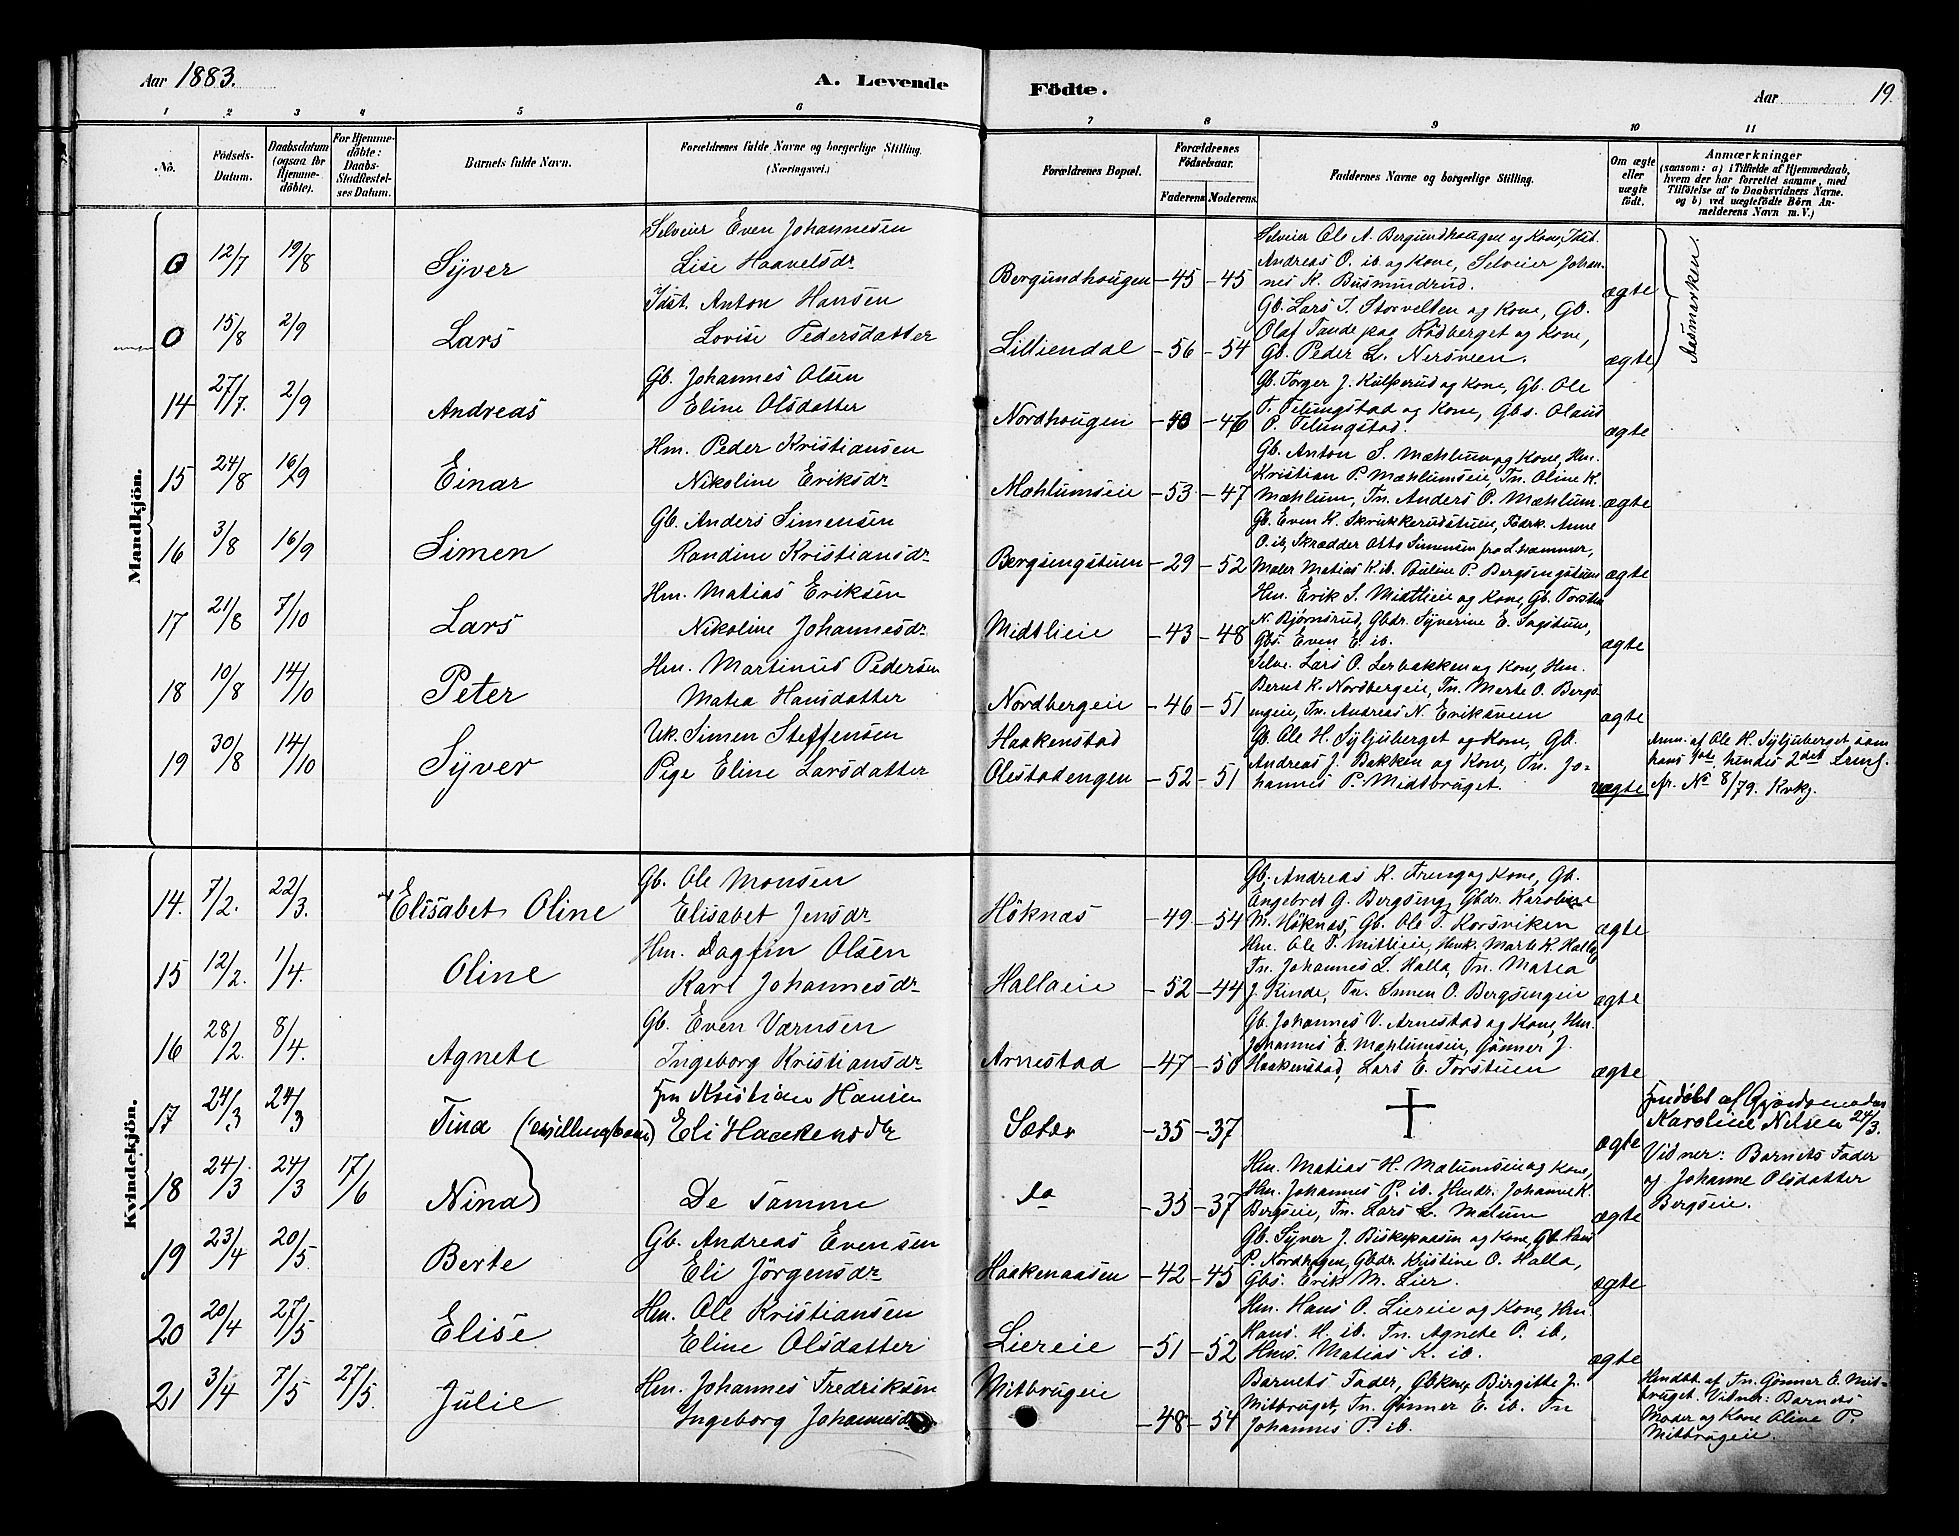 Aar 1883.
A. Levende
Födte.
Aar
19.
1 2 3 4 5 6 7 8 9 10 11
No.
Födsels-
Datum.
Daabsdatum
(ogsaa for
Hjemme-
döbte).
For Hjemme-
döbte:
Daabs-
Stadfæstel-
ses Datum.
Barnets fulde Navn.
Forældrenes fulde Navne og borgerlige Stilling.
(Næringsvei.)
Forældrenes Bopæl.
Forældrenes
Födselsaar.
Faderens Moderens
Faddernes Navne og borgerlige Stilling.
Om ægte
eller
uægte
født.
Anmærkninger
(saasom: a) i Tilfælde af Hjemmedaab,
hvem der har forrettet samme, med
Tilføielse af to Daabsvidners Navne.
og b) ved uægtefödte Börn An-
melderens Navn m. V.)
Mandkjön.
0 12/7 19/8 Syver
Selveier Even Johannesen
Lise Haavelsdr
Bergundhougen -45 -45
Selveier Ole A. Bergundhougen og Kone, Idst.
Andreas O. ib. og Kone, Selveier Johan-
nes K. Busmundrud.
ægte
Aasmarken.
0 15/8 2/9 Lars
Idst. Anton Hansen
Lovise Pedersdatter
Lilliendal -56 -54
Gb. Lars I. Storvelten og Kone, Gb.
Olaf Tande paa Rødberget og Kone,
Gb. Peder L. Nersveen.
ægte
14 27/7. 2/9 Andreas
Gb. Johannes Olsen
Eline Olsdatter
Nordhougen -46
Gb. Torger J. Kulperud og Kone, Gb. Ole
T. Tilungstad og Kone, Gbs. Olaus
P. Tilungstad.
ægte
15 24/8 16/9 Einar
Hm. Peder Kristiansen
Nikoline Eriksdr
Mæhlumseie -53 -47
Gb. Anton S. Mæhlum og Kone, Hm.
Kristian P. Mæhlumseie, Tn. Oline K.
Mæhlum, Tn. Anders O. Mæhlum.
ægte
16 3/8 16/9 Simen
Gb. Anders Simensen
Randine Kristiansdr
Bergsengstuen -29 -52
Gb. Even K. Skrukkerudstuen, Fdrk. Anne
O. ib, Skrædder Otto Simensen fra L.hammer,
Maler Matias K. ib. Buline P. Bergsengstuen
ægte
17 21/8 7/10 Lars
Hm. Matias Eriksen
Nikoline Johannesdr
Midtlieie -43 -48
Hm. Erik S. Midtlieie og Kone, Gb. Torstein
N. Bjørnsrud, Gbdr. Syverine E. Sagstuen,
Gbs. Even E. ib.
ægte
18 10/8 14/10 Peter
Hm. Martinus Pedersen
Matea Hansdatter
Nordbergeie -46 -51
Selve. Lars O. Lerbakken og Kone, Hm.
Bernt K. Nordbergeie, Tn. Merte O. Bergs-
engeie, Tn. Andreas N. Eriksveen
ægte
19 30/8 14/10 Syver
Uk. Simen Steffensen
Pige Eline Larsdatter
Haakenstad
Olestadengen -52 -51
Gb. Ole H. Syljuberget og Kone, Gb.
Andreas J. Bakken og Kone, Tn. Jo-
hannes P. Midtbruget.
uægte
Anm. af Ole H. Syljuberget, som
hans 1ste, hendes 2det Leierm.
fr. No 8/79. Kvkj.
Kvindekjön.
14. 7/2. 22/3. Elisabet Oline
Gb. Ole Monsen
Elisabet Jensdr
Höknæs -49 -54
Gb. Andreas K. Freng og Kone, Gb.
Engebret G. Bergseng, Gbdr. Karoline
M. Höknæs, Gb. Ole T. Korsviken
ægte
15 12/2. 1/4. Oline
Hm. Dagfin Olsen
Kari Johannesdr
Hallaeie -52 -44
Hm. Ole P. Mitlieie, Hmk. Marte K. Halla,
Tn. Johannes L. Halla, Tn. Matea
J. Rinde, Tn. Simen O. Bergsengeie
ægte
16 28/2. 8/4. Agnete
Gb. Even Værnsen
Ingeborg Kristiansdr
Arnestad -47 -50
Gb. Johannes V. Arnestad og Kone, Hm.
Johannes E. Mæhlumseie, Gønner J.
Haakenstad, Lars E. Torstuen
ægte
17 24/3 24/3 Tina (tvillingbarn)
Kristian Hansen
Eli Haakensdtr
Sæter -35 -37
ægte
Hmdöbt af Gjordemoder
Karoline Nilsen 24/3.
18 24/3 24/3 17/6 Nina
De samme
do -35 -37
Hm. Matias H. Mælumseie og Kone,
Hm. Johannes P. ib. Hmdr. Johanne K.
Bergseie, Tn. Lars L. Mælum
ægte
Vidner: Barnets Fader
og Johanne Olsdatter
Bergseie.
19 23/4 20/5. Berte
Gb. Andreas Evensen
Eli Jörgensdr
Haakenaasen -42 -45
Gb. Syver J. Biskopaasen og Kone, Gb. Hans
P. Nordhagen, Gbdr. Kristine O. Halla,
Gbs. Erik M. Lier.
ægte
20 20/4 27/5 Elise
Hm. Ole Kristiansen
Eline Olsdatter
Liereie -51 -52
Hm. Hans O. Liereie og Kone, Hm.
Hans. H. ib. Tn. Agnete O. ib,
Hms. Matias K. ib.
ægte
21 3/4 7/5 27/5. Julie
Hm. Johannes Fredriksen
Ingeborg Johannesdr
Mitbrugeie -48 -54
Barnets Fader, Gbkone Birgitte J.
Mitbruget, Tn. Gönner E. ib. Tn
Johannes P. ib.
Hmdöbt. af Tn. Gönner E. Mit-
bruget. Vidner: Barnets
Moder og Kone Oline P.
Mitbrugeie.